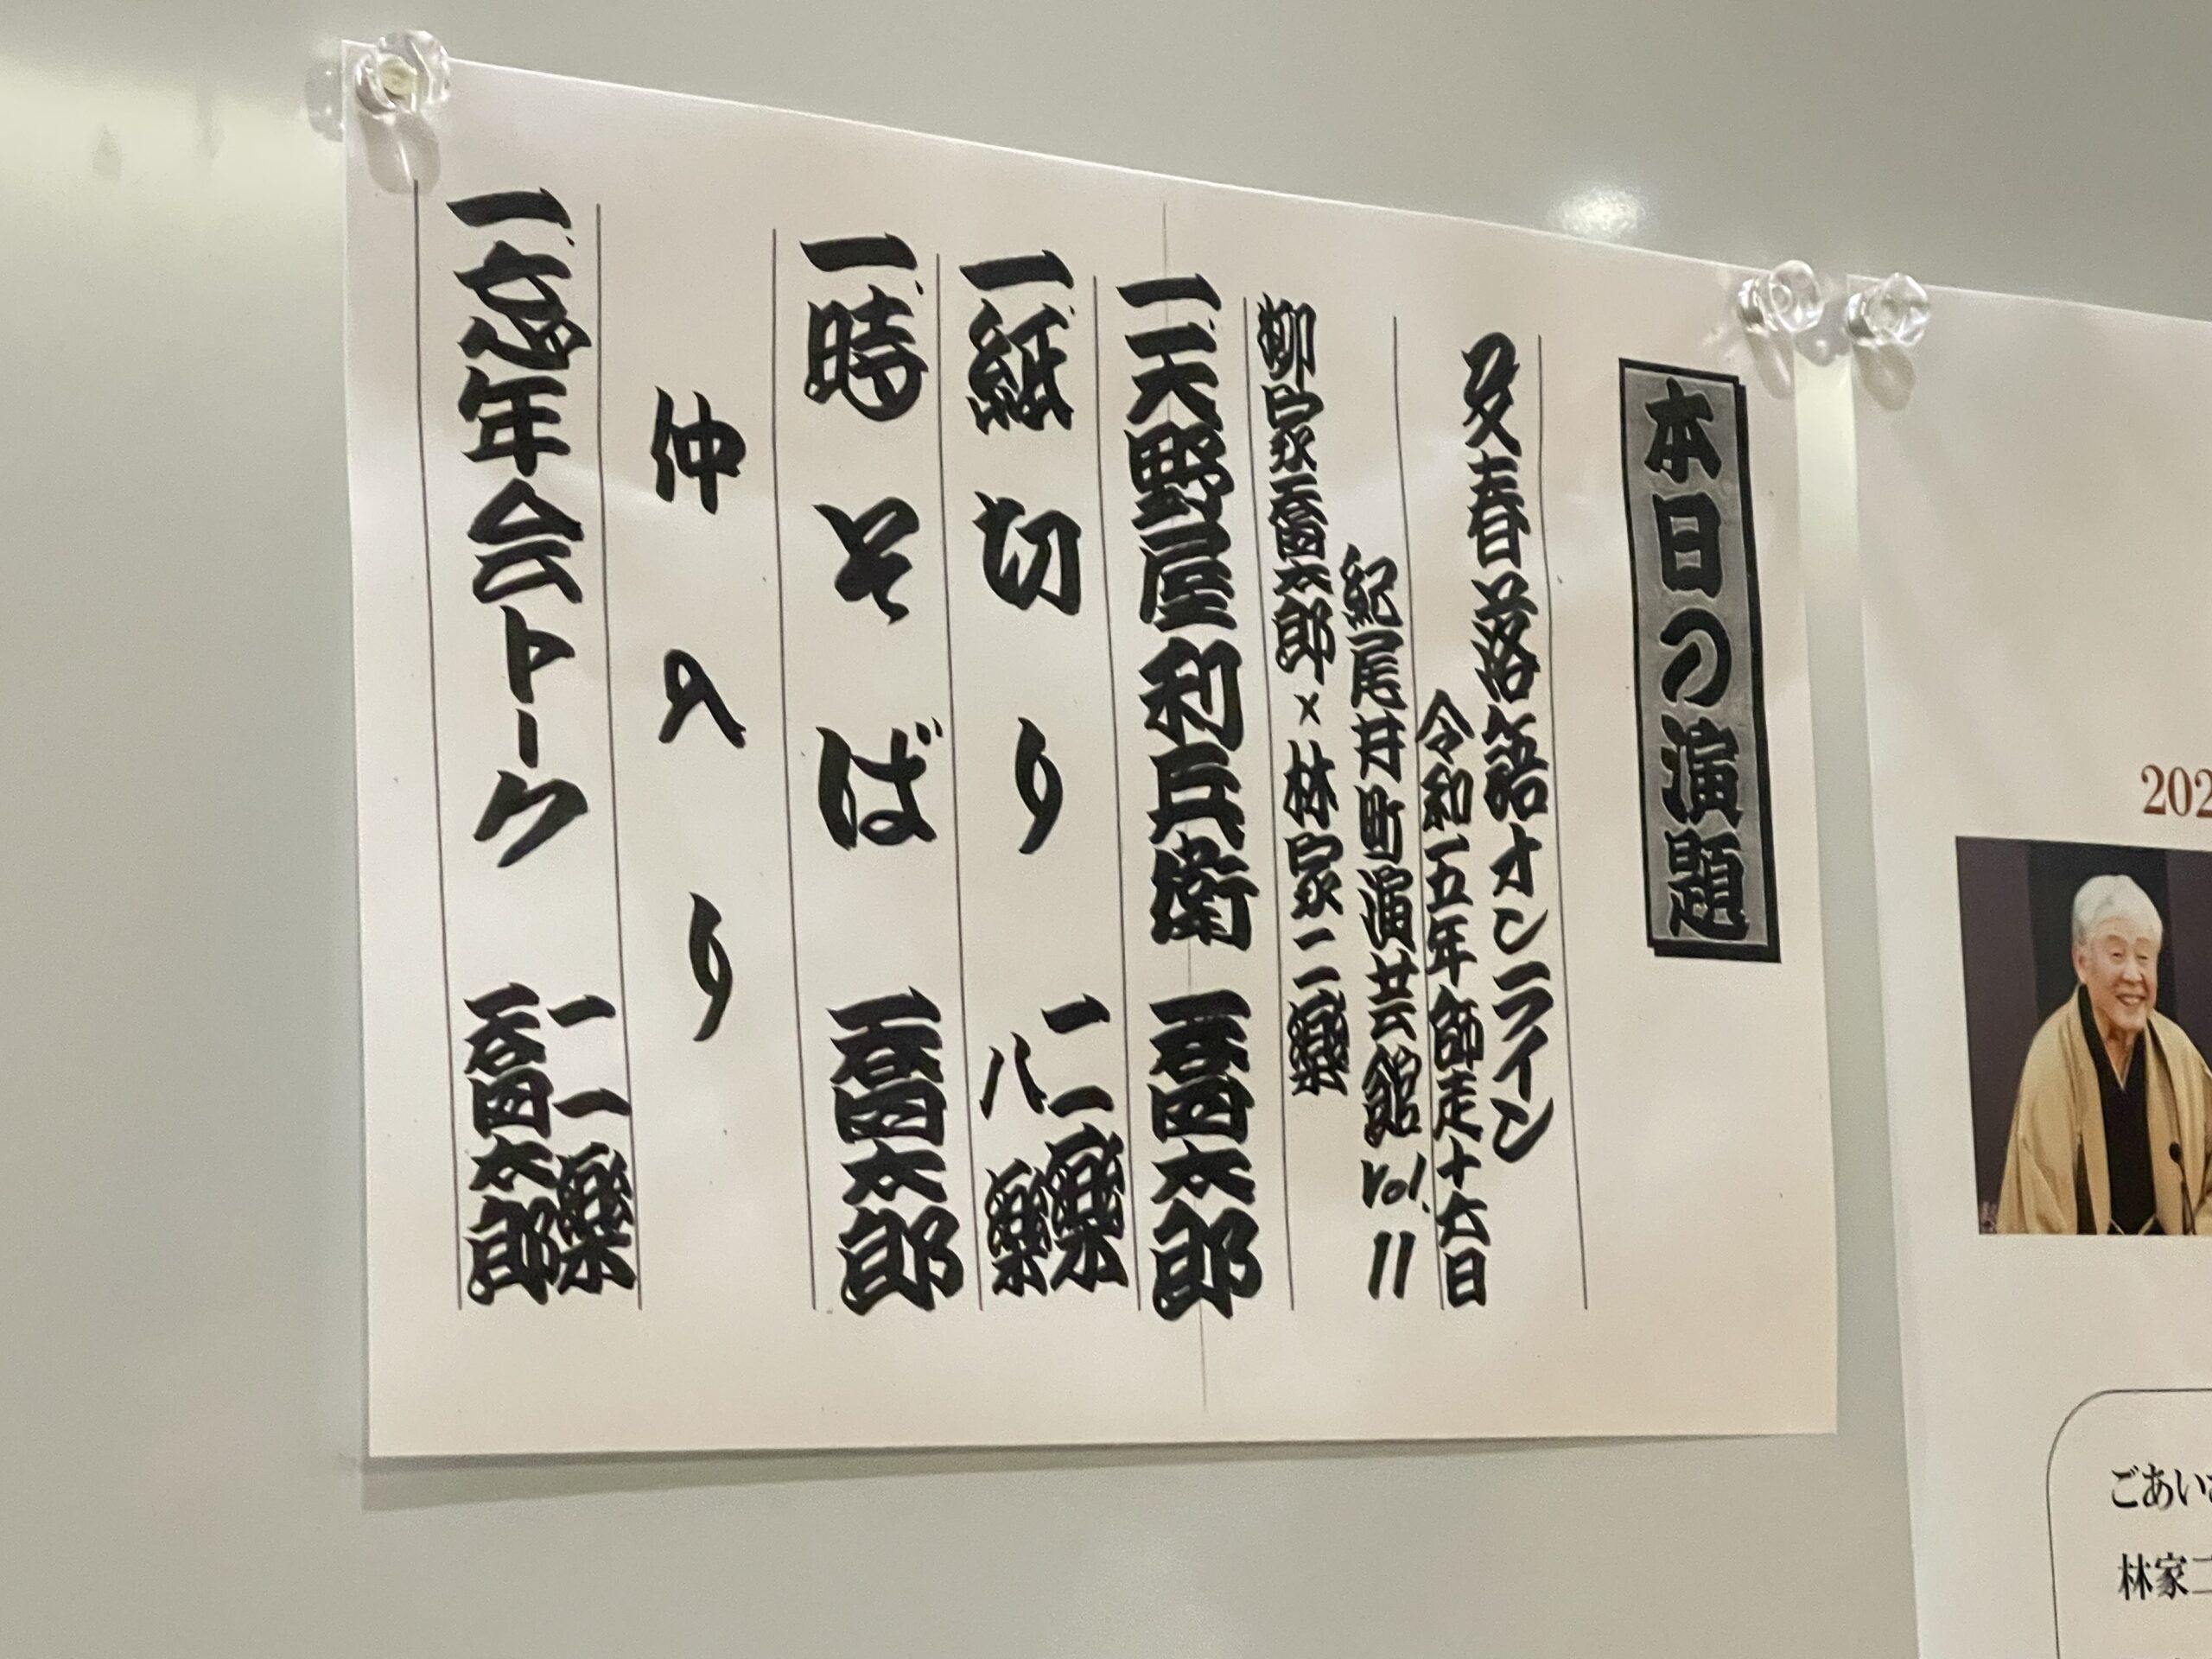 本日の演題
文春落語オンライン
令和五年師走十六日
紀尾井町演芸館 Vol.11
柳家喬太郎×林家二楽
一、天野屋利兵衛 喬太郎
一、紙切り 二楽
八楽
一、時そば 喬太郎
仲入り
一、忘年会トーク 二楽
喬太郎
202
ごあい
林家二